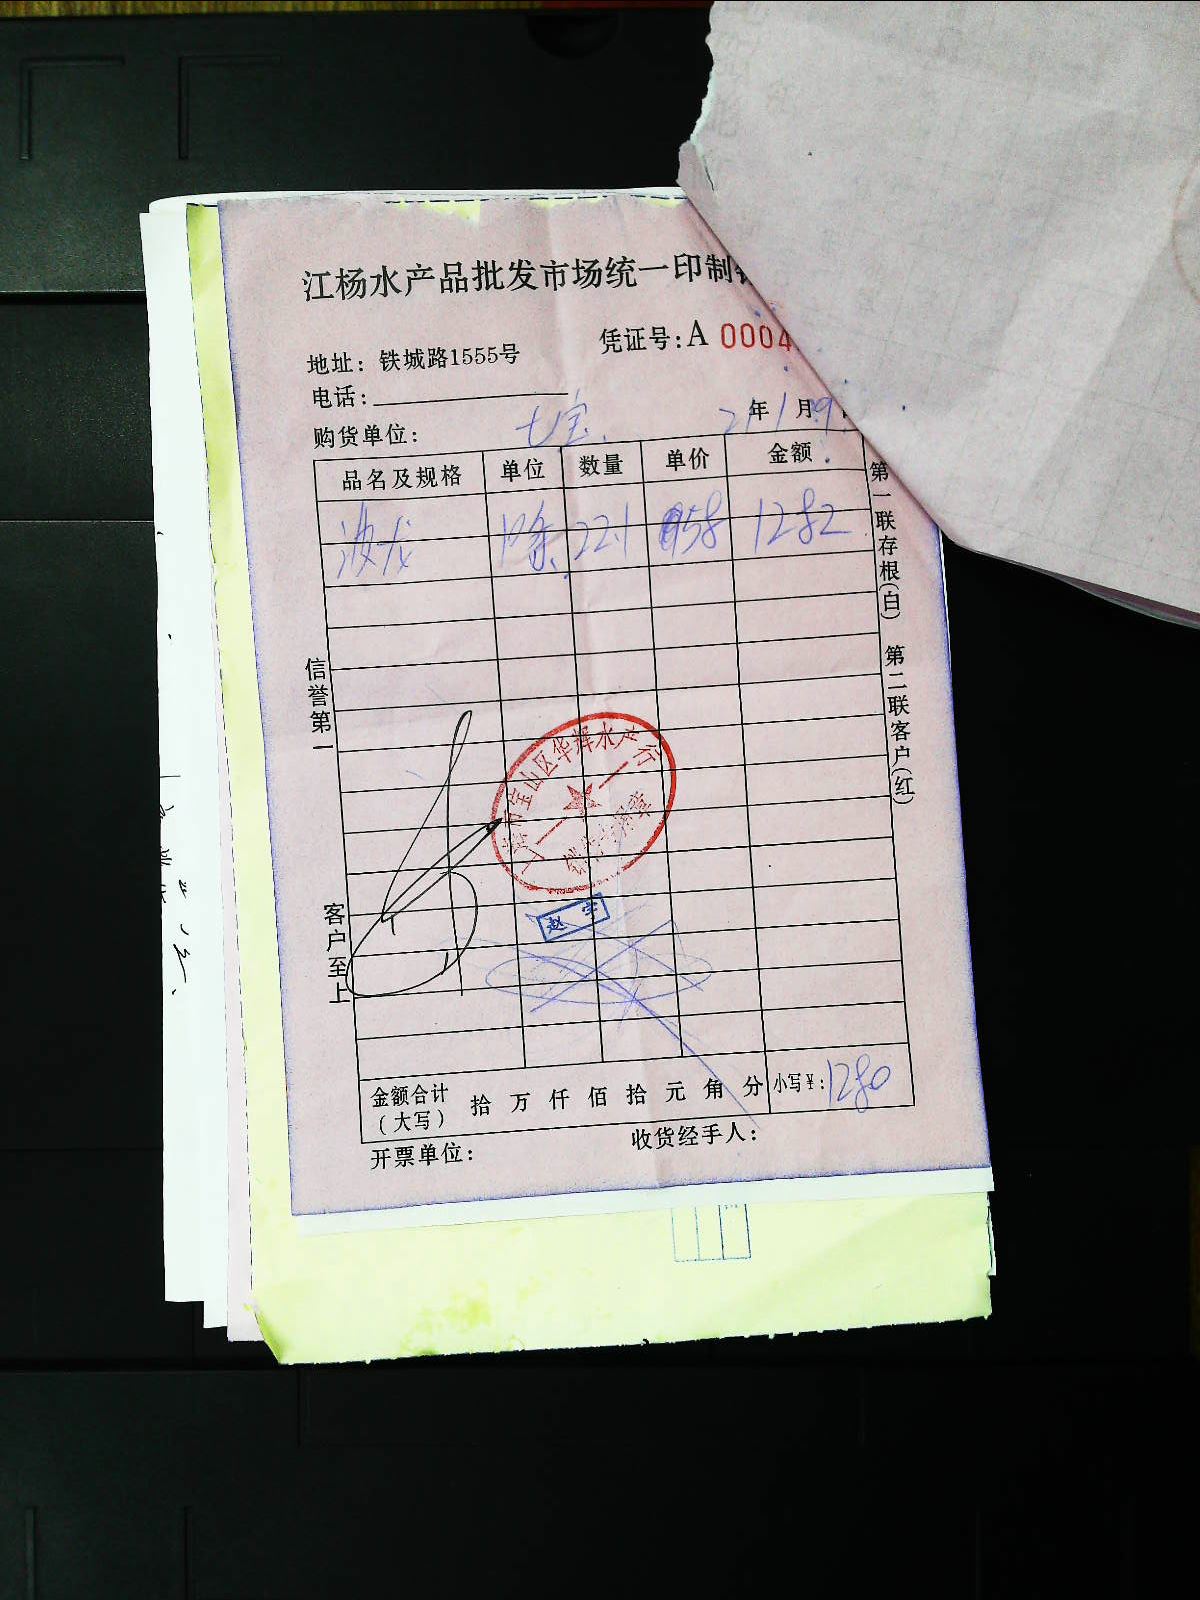 江杨水产品批发市场统一印制
凭证号:A 0004
地址: 铁城路1555号
电话:
购货单位: 七宝 21年1月9
品名及规格 单位 数量 单价 金额
波龙 22.1 58 1282
第一联存根(白) 第二联客户(红)
信誉第一
客户至上
宝山区华辉水产行
赵宇
金额合计(大写) 拾 万 仟 佰 拾 元 角 分 小写¥:1280
开票单位: 收货经手人: